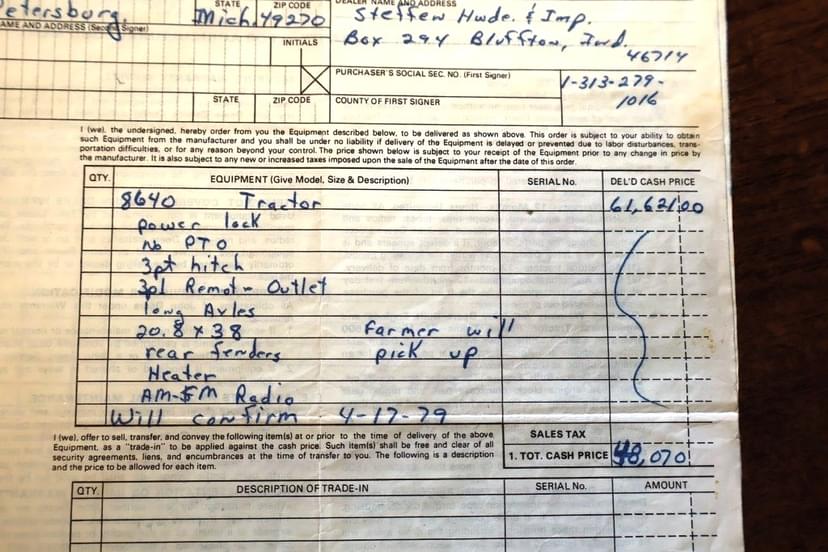 etersburg Mich. 49270
STATE ZIP CODE DEALER NAME AND ADDRESS
Steffen Hwde. & Imp.
AME AND ADDRESS (Second Signer)
Box 294 Bluffton, Ind.
46714
INITIALS
PURCHASER'S SOCIAL SEC. NO. (First Signer)
1-313-279-
1016
STATE ZIP CODE COUNTY OF FIRST SIGNER
I (we), the undersigned, hereby order from you the Equipment described below, to be delivered as shown above. This order is subject to your ability to obtain
such Equipment from the manufacturer and you shall be under no liability if delivery of the Equipment is delayed or prevented due to labor disturbances, trans-
portation difficulties, or for any reason beyond your control. The price shown below is subject to your receipt of the Equipment prior to any change in price by
the manufacturer. It is also subject to any new or increased taxes imposed upon the sale of the Equipment after the date of this order.
QTY. EQUIPMENT (Give Model, Size & Description) SERIAL No. DEL'D CASH PRICE
8640 Tractor 61,621.00
power lock
no PTO
3pt hitch
3pl Remote Outlet
long Axles
20.8 x 38 Farmer will
rear fenders pick up
Heater
AM-FM Radio
Will confirm 4-17-79
I (we), offer to sell, transfer, and convey the following item(s) at or prior to the time of delivery of the above
Equipment, as a "trade-in" to be applied against the cash price. Such item(s) shall be free and clear of all
security agreements, liens, and encumbrances at the time of transfer to you. The following is a description
and the price to be allowed for each item.
SALES TAX
1. TOT. CASH PRICE 48,070
QTY. DESCRIPTION OF TRADE-IN SERIAL No. AMOUNT